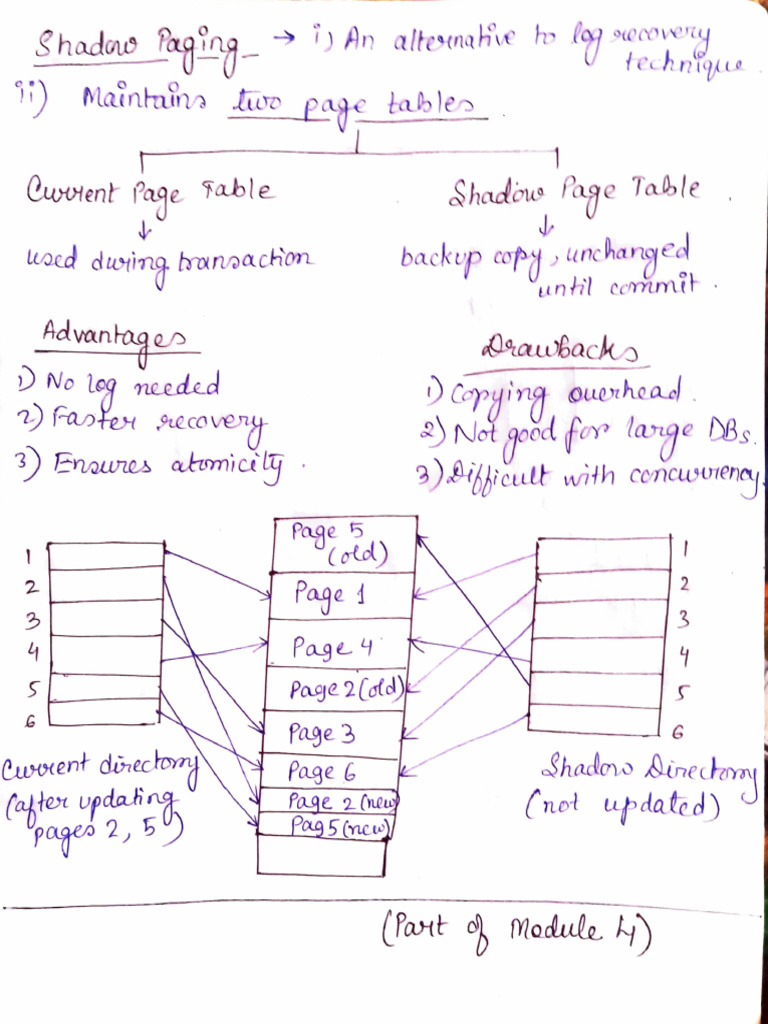 Shadow Paging → i) An alternative to log recovery
technique.
ii) Maintains two page tables.
Current Page Table
Shadow Page Table.
used during transaction
backup copy, unchanged
until commit.
Advantages
1) No log needed
2) Faster recovery
3) Ensures atomicity.
Drawbacks
1) Copying overhead.
2) Not good for large DBs.
3) Difficult with concurrency.
1
2
3
4
5
6
Current directory
(after updating
pages 2, 5)
Page 5
(old)
Page 1
Page 4
Page 2 (old)
Page 3
Page 6
Page 2 (new)
Pag5 (new)
1
2
3
4
5
6
Shadow Directory
(not updated)
(Part of Module 4)